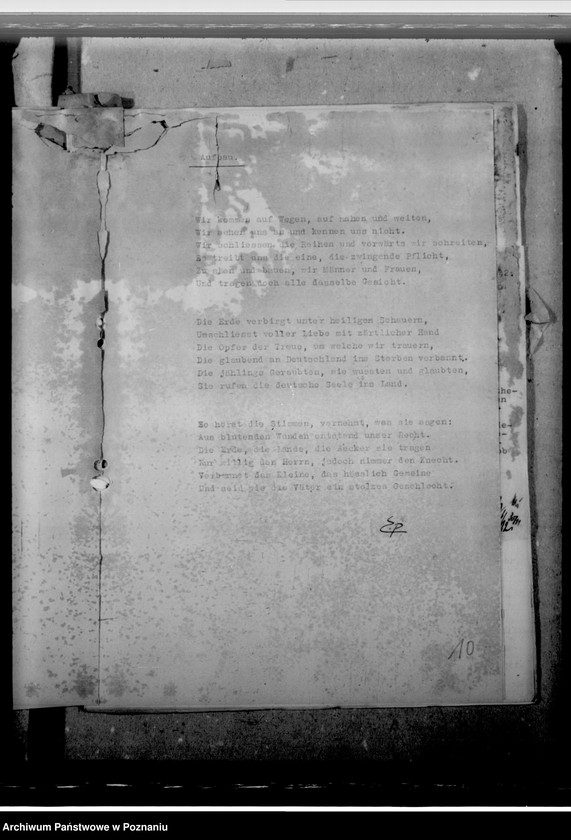 Wir kommen auf Wegen, auf nahen und weiten,
Wir sehen uns an und kennen uns nicht.
Wir schliessen die Reihen und vorwärts wir schreiten,
Es treibt uns die eine, die zwingende Pflicht,
wir Männer und Frauen,
Und tragen doch alle dasselbe Gesicht.
Die Erde verbirgt unter heiligen Schauern,
Umschliesst voller Liebe mit zärtlicher Hand
Die Opfer der Treue, um welche wir trauern,
Die glaubend an Deutschland ins Sterben verbannt.
Die jählings Geraubten, sie wussten und glaubten,
Sie rufen die deutsche Seele ins Land.
So höret die Stimmen, vernehmt, was sie sagen:
Aus blutenden Wunden entstand unser Recht.
Die Erde, die die Aecker sie tragen
Nur willig den Herrn, jedoch nimmer den Knecht.
das hässlich Gemeine
Und seid wie die Väter ein stolzes Geschlecht.
10
Archiwum Państwowe w Poznaniu